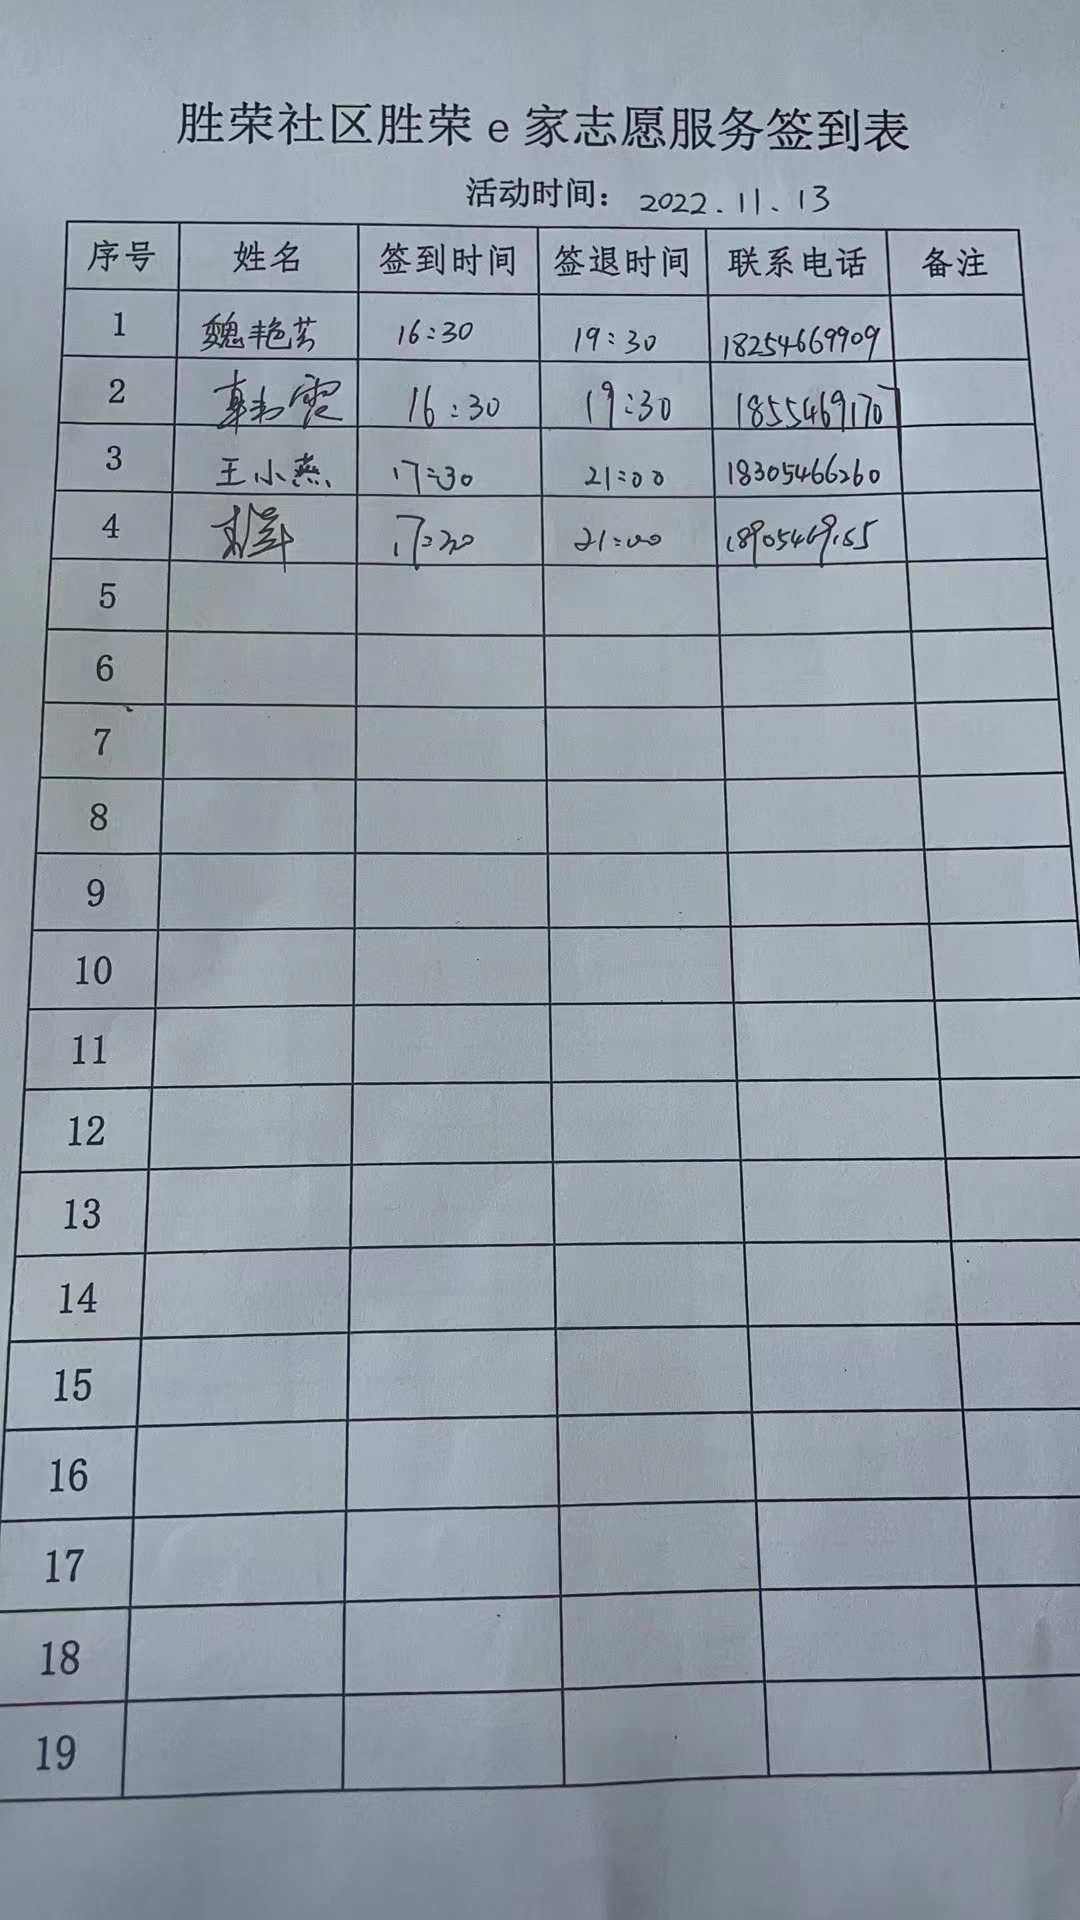 胜荣社区胜荣e家志愿服务签到表
活动时间：2022.11.13
序号 姓名 签到时间 签退时间 联系电话 备注
1 魏艳芳 16:30 19:30 18254669909
2 16:30 19:30 18554691707
3 王小燕 17:30 21:00 18305466260
4 17:30 21:00 18905469165
5
6
7
8
9
10
11
12
13
14
15
16
17
18
19